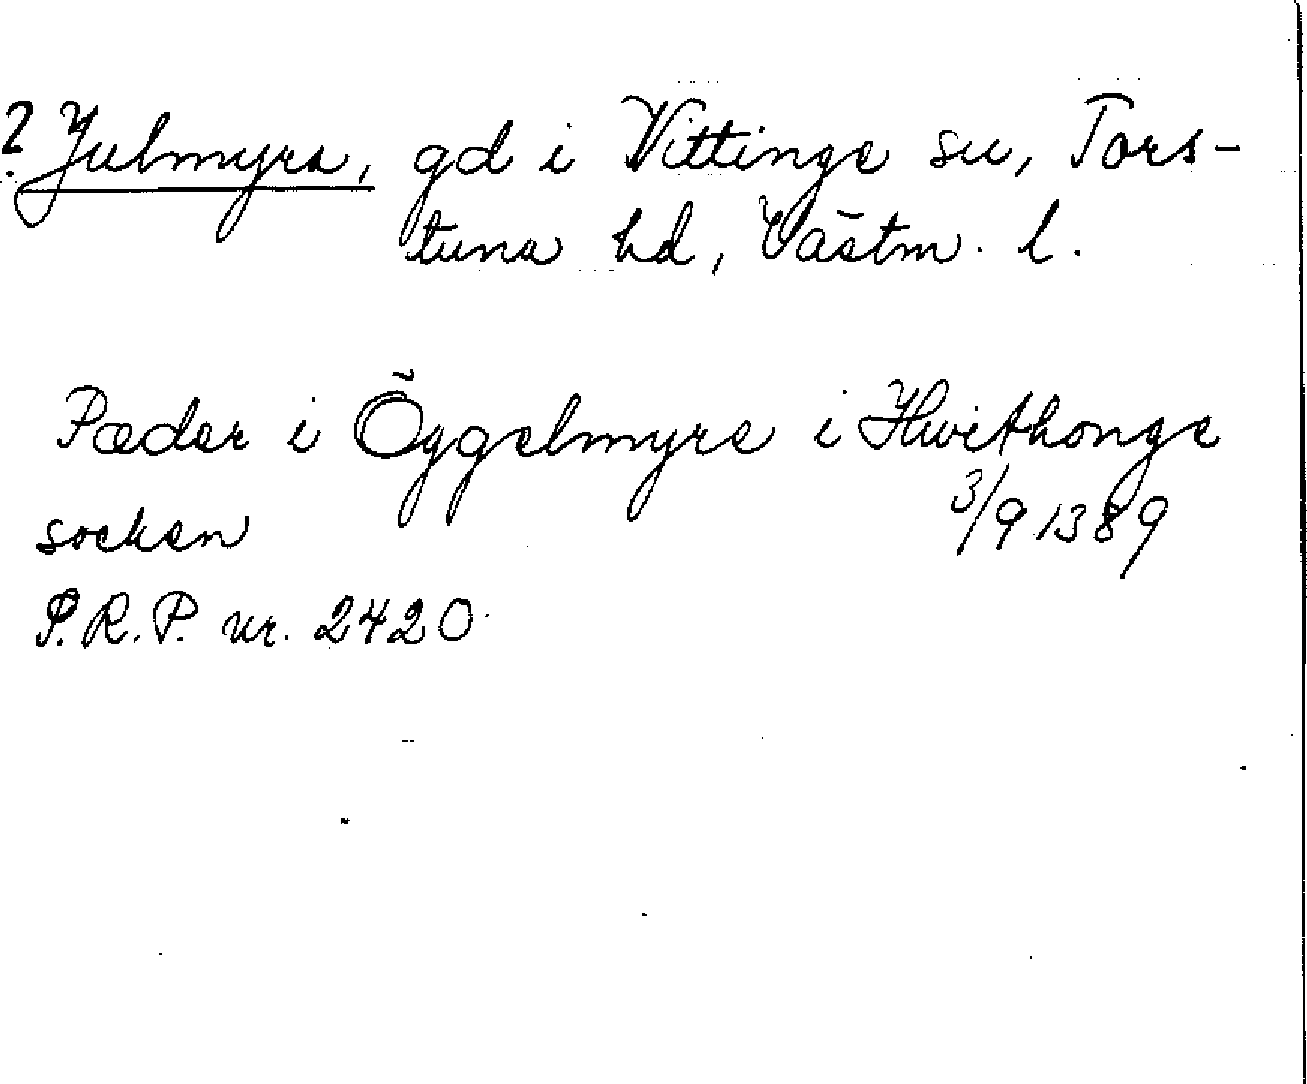 ? Julmyra, gd i Vittinge sn, Tors-
tuna hd, Västm. l.
Pæder i Öggelmyre i Hwithonge
socken 3/9 1389
S.R.P. nr. 2420